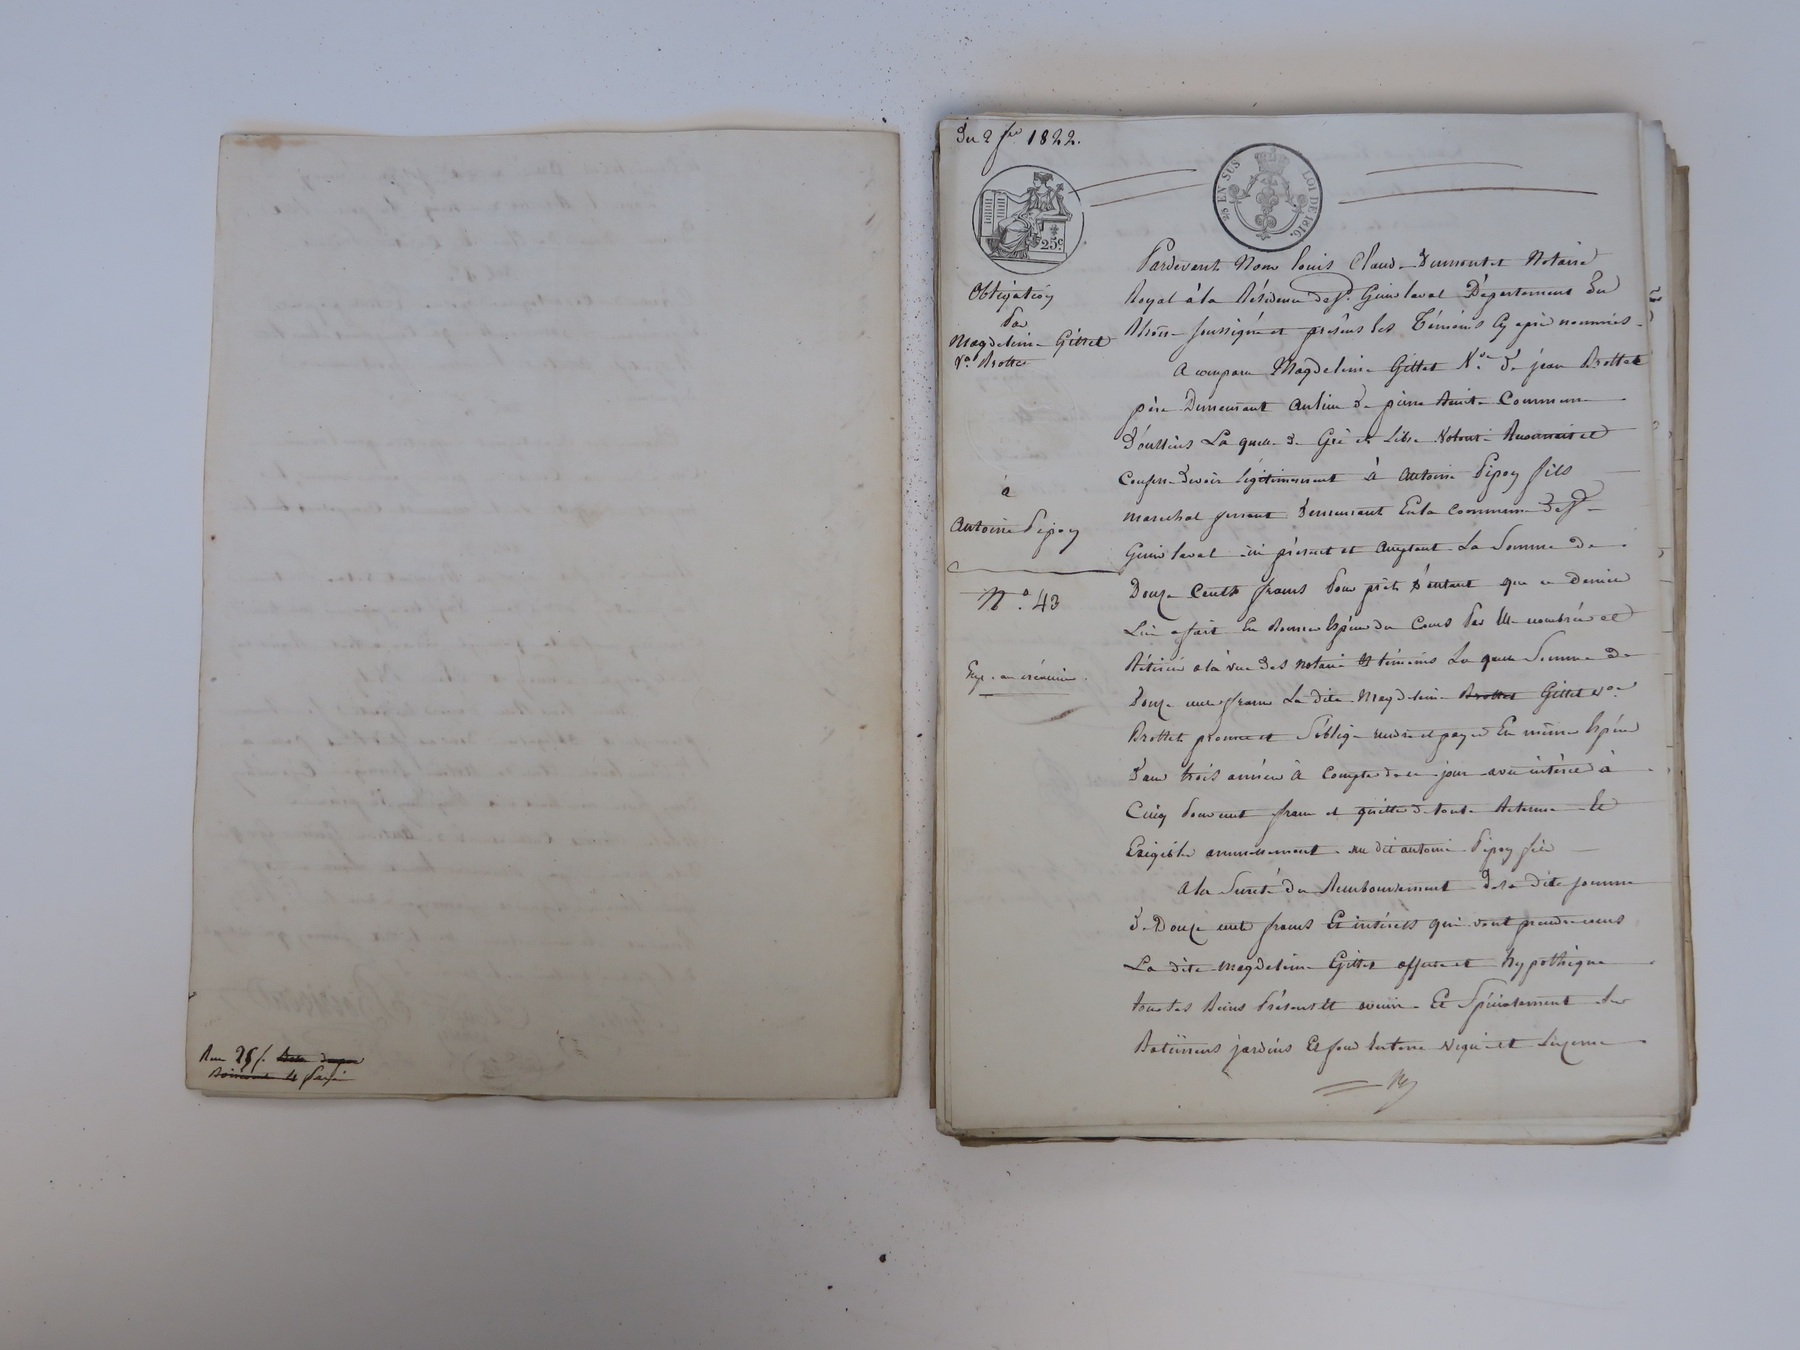 Reçu 25f.
Du 2 fer 1822.
25 EN SUS LOI DE 1816.
25c
Obligation
Par
Magdeleine Gillet
Ve Brottet
à
Antoine Pipoy
N.o 43
Pardevant Nous louis Claude Dumont Notaire
Royal à la Résidence de St. Genis laval Département Du
Rhône soussigné et présens les Témoins cy après nommés
A comparu Magdeleine Gillet Ve. De jean Brottet
père Demeurant au lieu de pierre Commune
D'oullins La quelle de Gré et libre Volonté Reconnait et
Confesse devoir légitimement à Antoine Pipoy fils
marechal ferrant Demeurant En la Commune de St
Genis laval ici présent et acceptant La Somme de
Douze Cents francs Pour prêt D'autant que ce Dernier
Lui a fait En Bonnes Espèces du Cours Par Elle nombrées et
Retirées a la vue des notaire et témoins La quelle Somme de
Douze cents francs La dite Magdeleine Brottet Gillet ve.
Brottet promet et S'oblige rendre et payer En même Espèces
Dans trois années à Compter de ce jour avec intérêt à
Cinq Pour cent franc et quitte de toute Retenue Et
Exigible annuellement au dit antoine Pipoy fils
A la Sureté du Remboursement de la dite somme
de Douze cent francs Et intérêts qui vont prendre cours
La dite Magdeleine Gillet affecte et hypothèque
tous ses Biens Présent Et avenir Et Spécialement Ses
Batimens jardins Et fond En terre vigne et Luzerne